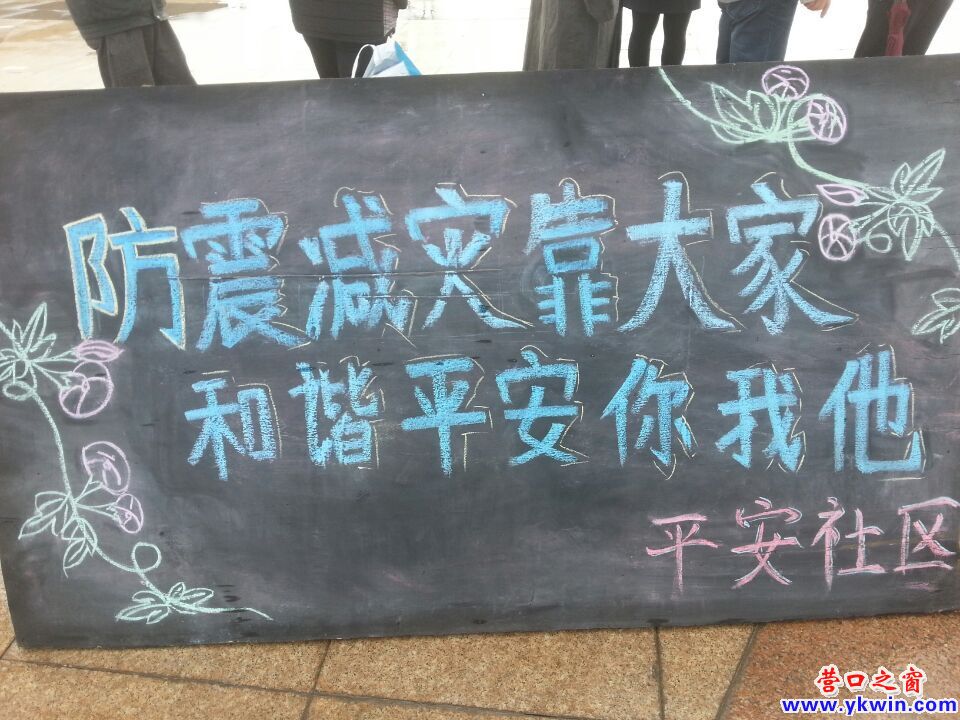 防震减灾靠大家
和谐平安你我他
平安社区
营口之窗
www.ykwin.com